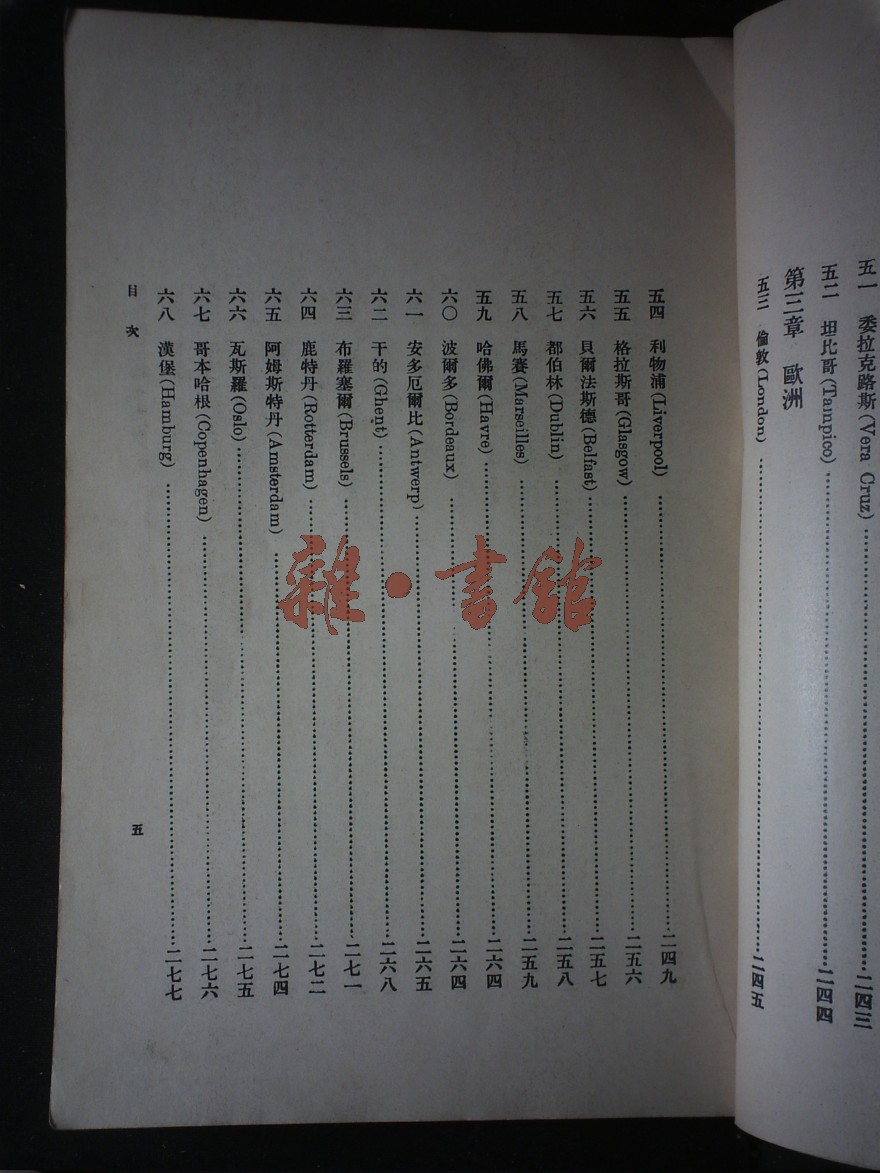 五一　委拉克路斯(Vera Cruz)……二四三
五二　坦比哥(Tampico)……二四四
第三章　歐洲
五三　倫敦(London)……二四五
五四　利物浦(Liverpool)……二四九
五五　格拉斯哥(Glasgow)……二五六
五六　貝爾法斯德(Belfast)……二五七
五七　都伯林(Dublin)……二五八
五八　馬賽(Marseilles)……二五九
五九　哈佛爾(Havre)……二六四
六〇　波爾多(Bordeaux)……二六四
六一　安多厄爾比(Antwerp)……二六五
六二　干的(Ghent)……二六八
六三　布羅塞爾(Brussels)……二七一
六四　鹿特丹(Rotterdam)……二七二
六五　阿姆斯特丹(Amsterdam)……二七四
六六　瓦斯羅(Oslo)……二七五
六七　哥本哈根(Copenhagen)……二七六
六八　漢堡(Hamburg)……二七七
目次　五
雜·書館